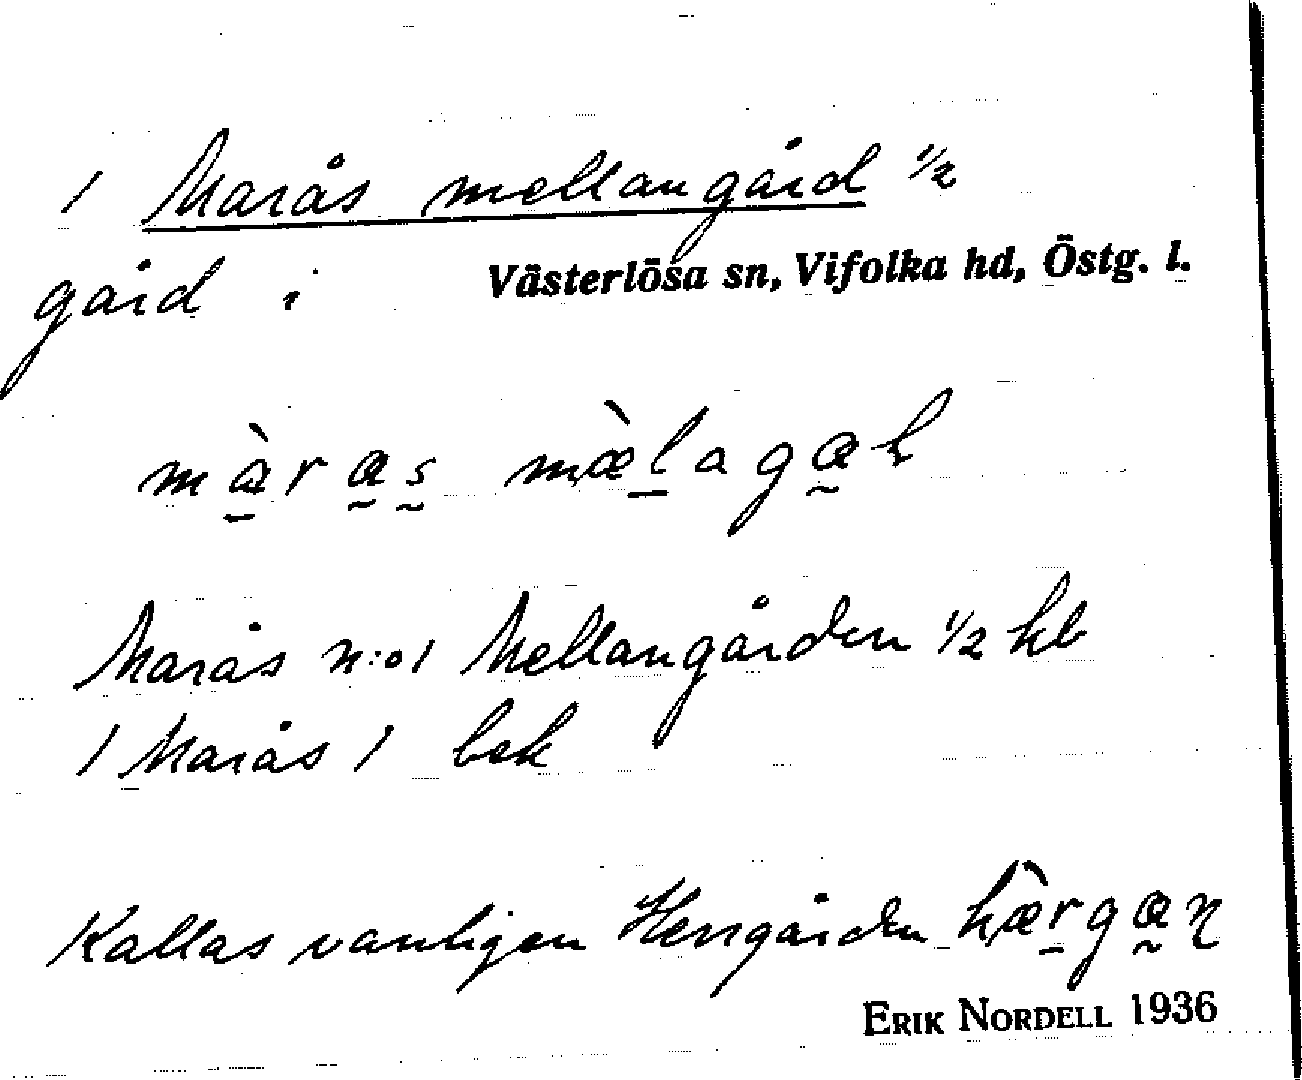 / Marås mellangård 1/2
gård i Västerlösa sn, Vifolka hd, Östg. l.
Marås n:o 1 Mellangården 1/2 hb
/ Marås / bek
Kallas vanligen Herrgården
ERIK NORDELL 1936